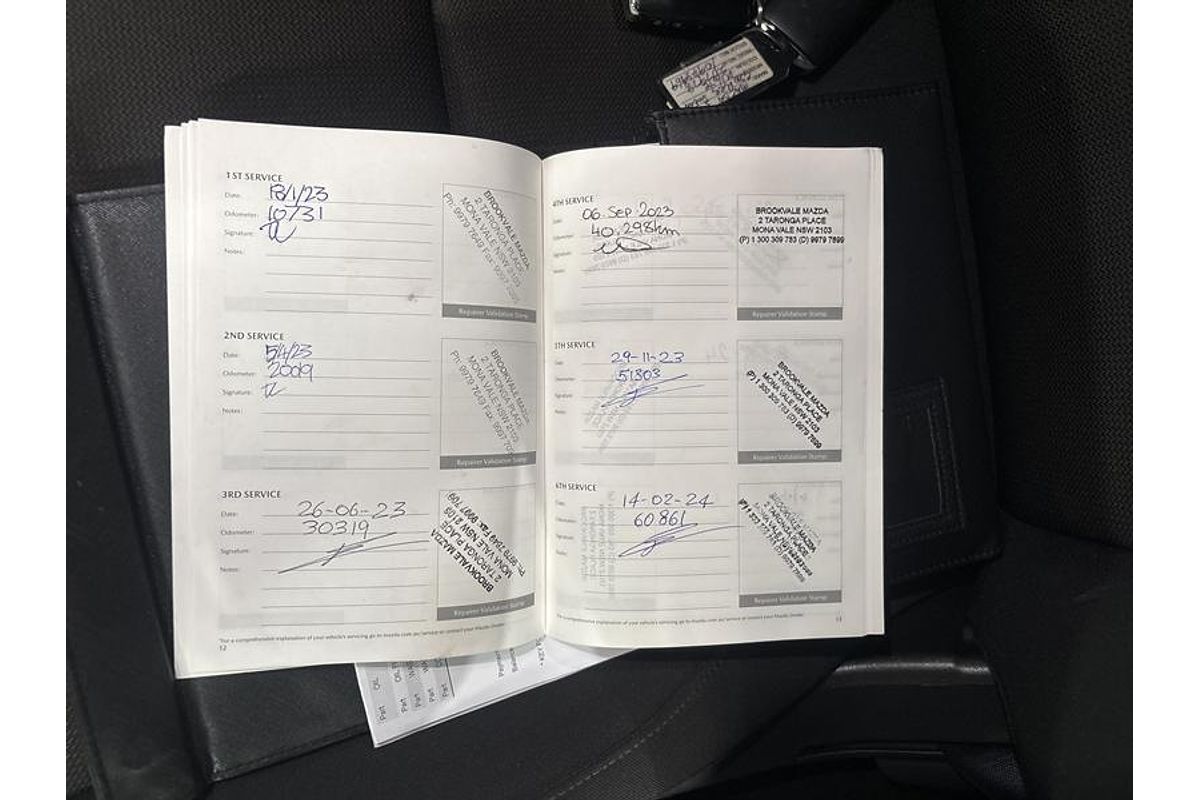 1ST SERVICE
Date: 18/1/23
Odometer: 10131
Signature:
Notes:
BROOKVALE MAZDA
2 TARONGA PLACE
MONA VALE NSW 2103
Ph: 9979 7649 Fax: 9997
Repairer Validation Stamp
2ND SERVICE
Date: 5/4/23
Odometer: 20019
Signature:
Notes:
BROOKVALE MAZDA
2 TARONGA PLACE
MONA VALE NSW 2103
Ph: 9979 7649 Fax: 9997 709
Repairer Validation Stamp
3RD SERVICE
Date: 26-06-23
Odometer: 30319
Signature:
Notes:
BROOKVALE MAZDA
2 TARONGA PLACE
MONA VALE NSW 2103
Ph: 9979 7649 Fax 9997 709
Repairer Validation Stamp
*For a comprehensive explanation of your vehicle's servicing go to mazda.com.au/service or contact your Mazda Dealer.
12
4TH SERVICE
Date: 06. Sep. 2023
Odometer: 40.298km
Signature:
Notes:
BROOKVALE MAZDA
2 TARONGA PLACE
MONA VALE NSW 2103
(P) 1 300 309 783 (D) 9979 7899
Repairer Validation Stamp
5TH SERVICE
Date: 29-11-23
Odometer: 51303
Signature:
Notes:
BROOKVALE MAZDA
2 TARONGA PLACE
MONA VALE NSW 2103
Repairer Validation Stamp
6TH SERVICE
Date: 14-02-24
Odometer: 60861
Signature:
Notes:
BROOKVALE MAZDA
2 TARONGA PLACE
Repairer Validation Stamp
*For a comprehensive explanation of your vehicle's servicing go to mazda.com.au/service or contact your Mazda Dealer.
13
Part OIL
Part
Part
Part
Part